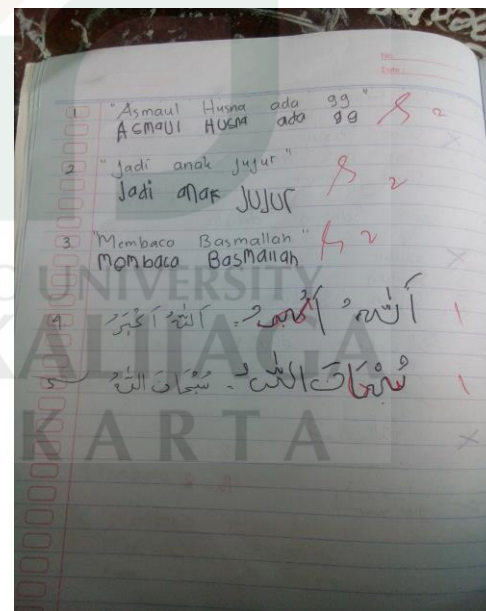 No.
Date :
1 "Asmaul Husna ada 99" 2
Asmaul Husna ada 99
2 "Jadi anak jujur" 2
Jadi anak JUJUR
3 "Membaca Basmallah" 2
membaca Basmallah
4. اَللّٰهُ اَكْبَرُ . اَللّٰهُ اَكْبَرُ 1
5 سُبْحَانَ اللّٰهُ . سُبْحَانَ اللّٰهُ 1
UNIVERSITY
KALIJAGA
KARTA